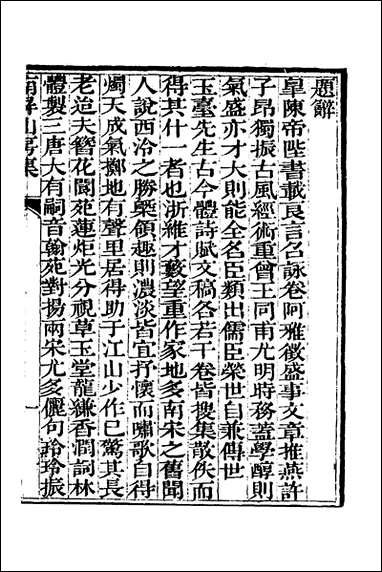 題辭
臯陳帝陛書載良言召詠卷阿雅徵盛事文章推燕許
子昂獨振古風經術重曾王同甫尤明時務蓋學醇則
氣盛亦才大則能全名臣類出儒臣榮世自兼傳世
玉臺先生古今體詩賦文稿各若干卷皆搜集散佚而
得其什一者也浙維才藪望重作家地多南宋之舊聞
人說西泠之勝槩領趣則濃淡皆宜抒懷而嘯歌自得
燭天成氣擲地有聲里居得助于江山少作已驚其長
老迨夫簪花閬苑蓮炬光分視草玉堂龍縑香潤詞林
體製三唐大有嗣音翰苑對揚兩宋尤多儷句詅玲振
南屏山房集
一